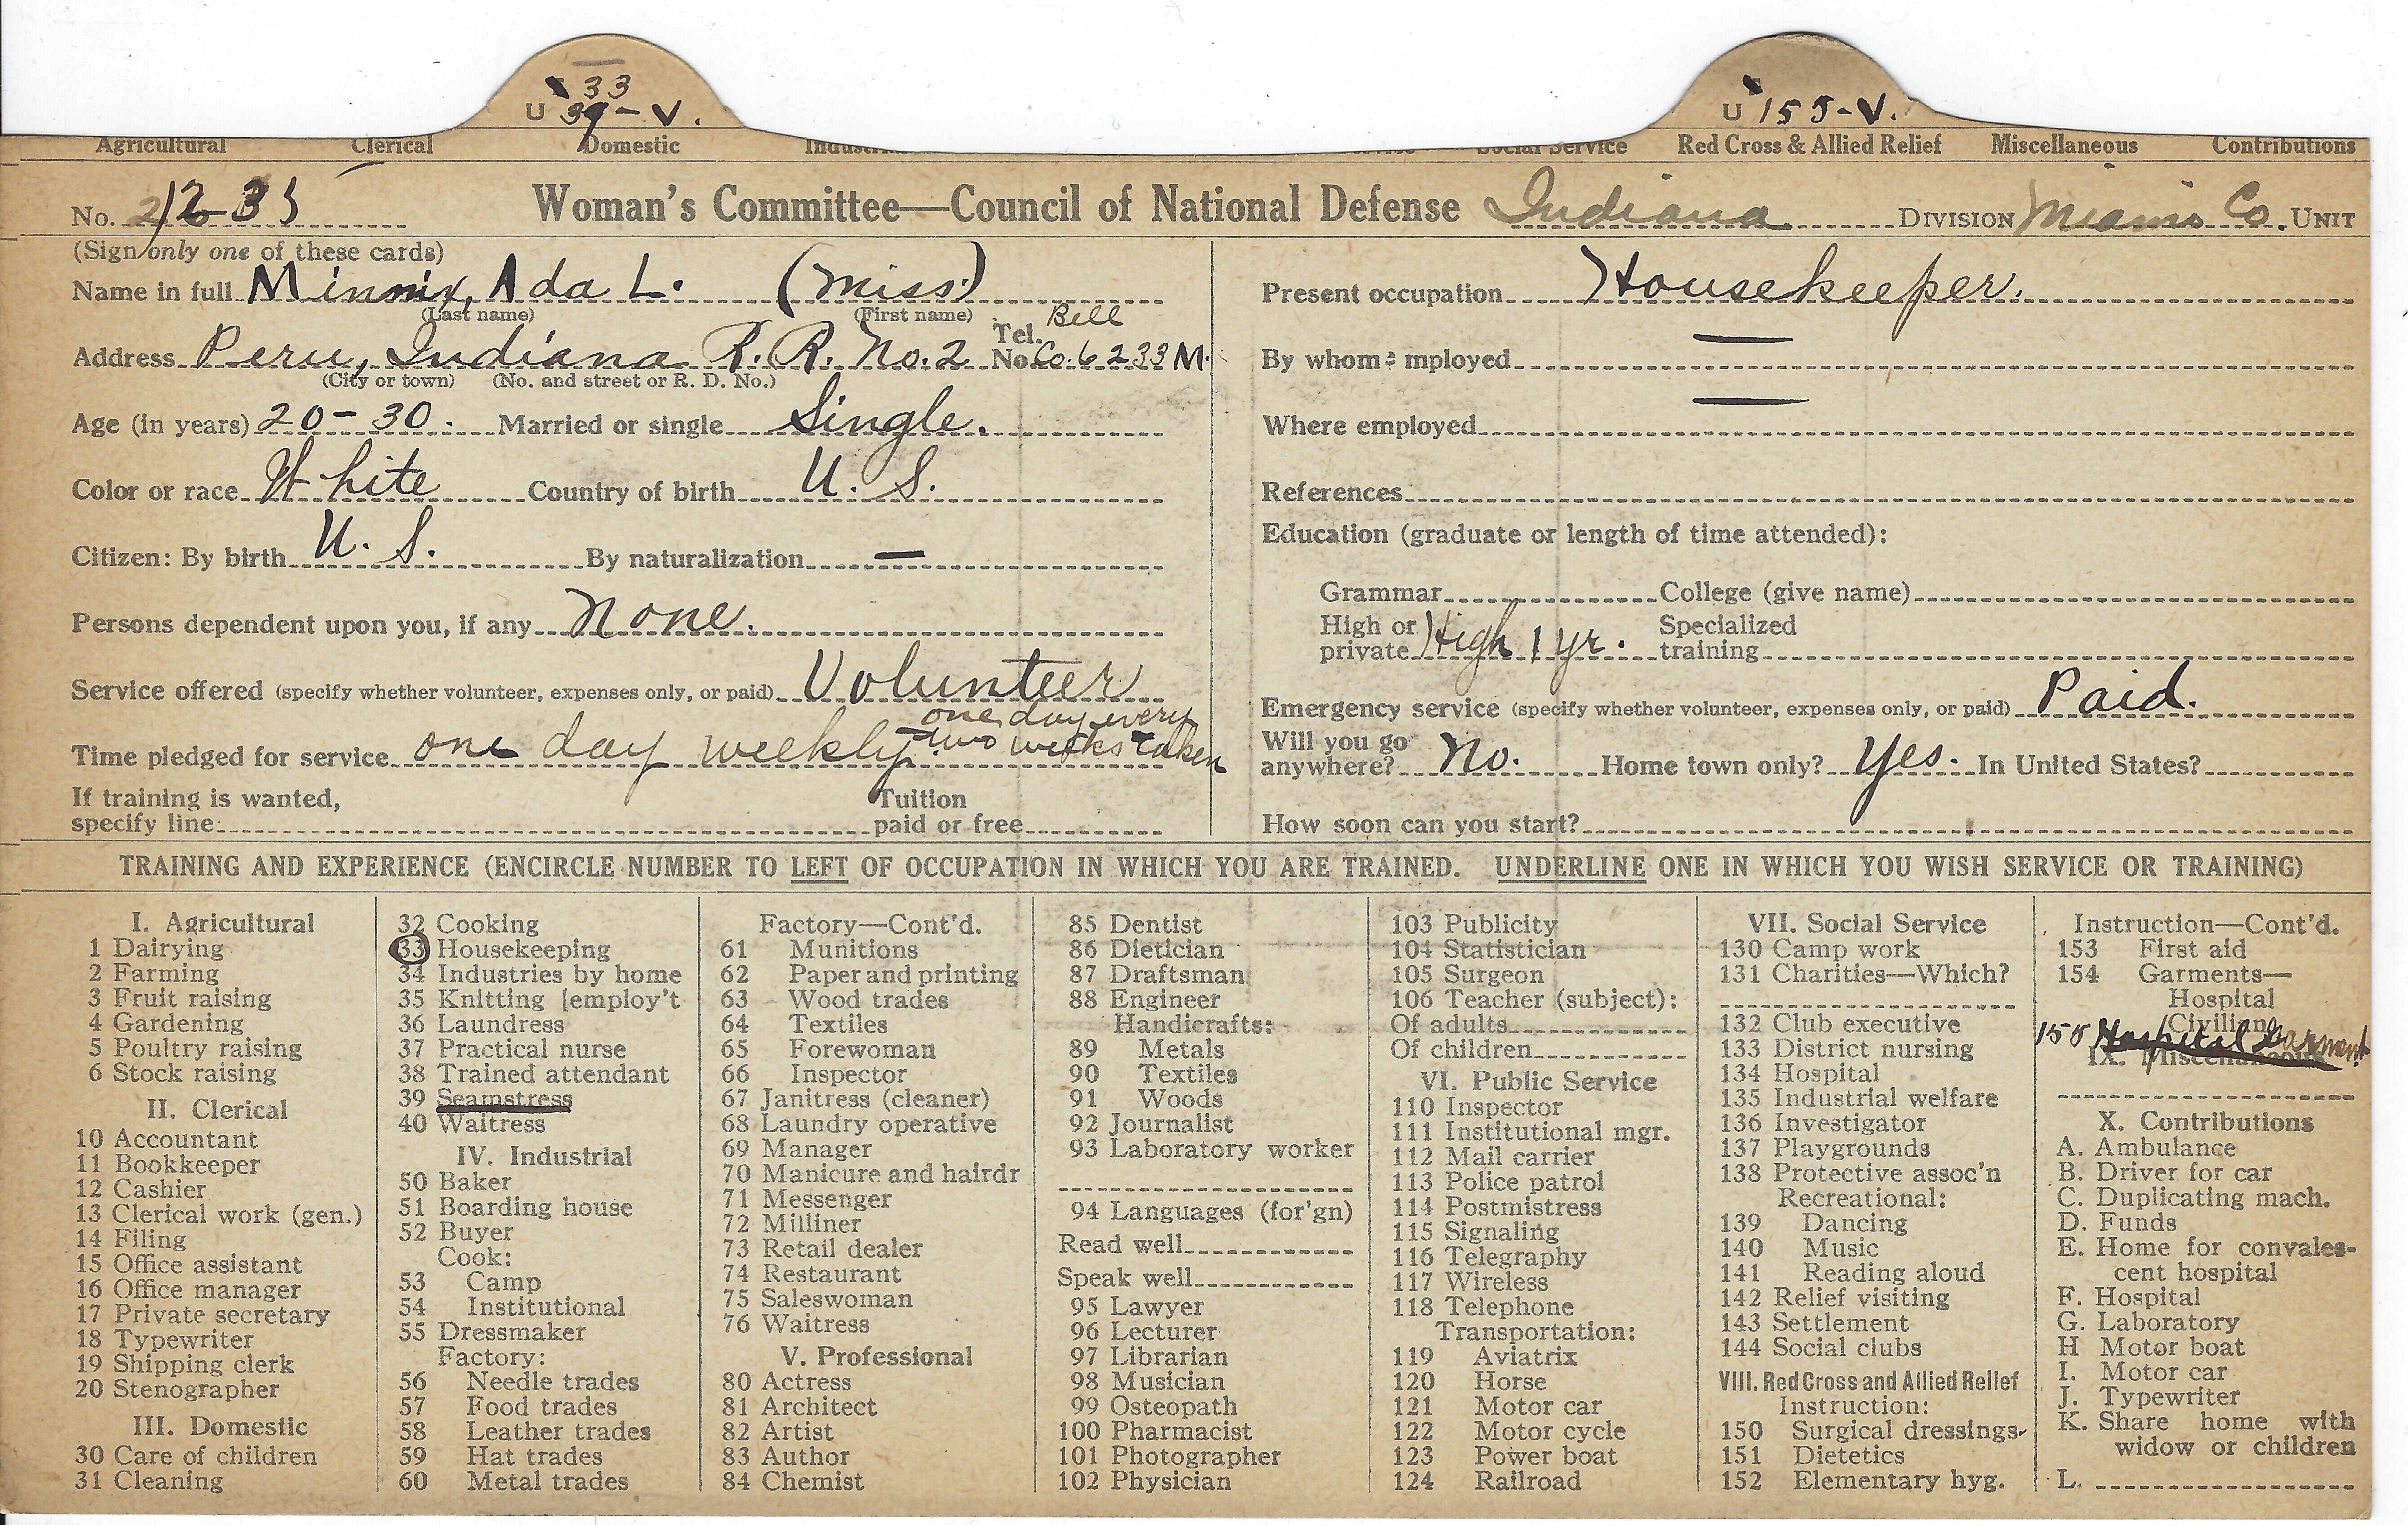 33
U 39-V.
U 155-V.
Agricultural Clerical Domestic Social Service Red Cross & Allied Relief Miscellaneous Contributions
No. 1235 Woman's Committee—Council of National Defense Indiana DIVISION Miami Co. UNIT
(Sign only one of these cards)
Name in full Minnix, Ada L. (Miss)
(Last name) (First name)
Bell
Address Peru, Indiana R. R. No. 2 Tel. No. Co. 6233 M.
(City or town) (No. and street or R. D. No.)
Age (in years) 20-30. Married or single Single.
Color or race White Country of birth U. S.
Citizen: By birth U. S. By naturalization —
Persons dependent upon you, if any None.
Service offered (specify whether volunteer, expenses only, or paid) Volunteer
one day every
Time pledged for service one day weekly. two weeks taken
If training is wanted, Tuition
specify line paid or free
Present occupation Housekeeper.
By whom employed —
Where employed —
References
Education (graduate or length of time attended):
Grammar College (give name)
High or Specialized
private High 1 yr. training
Emergency service (specify whether volunteer, expenses only, or paid) Paid.
Will you go
anywhere? No. Home town only? Yes. In United States?
How soon can you start?
TRAINING AND EXPERIENCE (ENCIRCLE NUMBER TO LEFT OF OCCUPATION IN WHICH YOU ARE TRAINED. UNDERLINE ONE IN WHICH YOU WISH SERVICE OR TRAINING)
I. Agricultural
1 Dairying
2 Farming
3 Fruit raising
4 Gardening
5 Poultry raising
6 Stock raising
II. Clerical
10 Accountant
11 Bookkeeper
12 Cashier
13 Clerical work (gen.)
14 Filing
15 Office assistant
16 Office manager
17 Private secretary
18 Typewriter
19 Shipping clerk
20 Stenographer
III. Domestic
30 Care of children
31 Cleaning
32 Cooking
33 Housekeeping
34 Industries by home
35 Knitting [employ't
36 Laundress
37 Practical nurse
38 Trained attendant
39 Seamstress
40 Waitress
IV. Industrial
50 Baker
51 Boarding house
52 Buyer
Cook:
53 Camp
54 Institutional
55 Dressmaker
Factory:
56 Needle trades
57 Food trades
58 Leather trades
59 Hat trades
60 Metal trades
Factory—Cont'd.
61 Munitions
62 Paper and printing
63 Wood trades
64 Textiles
65 Forewoman
66 Inspector
67 Janitress (cleaner)
68 Laundry operative
69 Manager
70 Manicure and hairdr
71 Messenger
72 Milliner
73 Retail dealer
74 Restaurant
75 Saleswoman
76 Waitress
V. Professional
80 Actress
81 Architect
82 Artist
83 Author
84 Chemist
85 Dentist
86 Dietician
87 Draftsman
88 Engineer
Handicrafts:
89 Metals
90 Textiles
91 Woods
92 Journalist
93 Laboratory worker
94 Languages (for'gn)
Read well
Speak well
95 Lawyer
96 Lecturer
97 Librarian
98 Musician
99 Osteopath
100 Pharmacist
101 Photographer
102 Physician
103 Publicity
104 Statistician
105 Surgeon
106 Teacher (subject):
Of adults
Of children
VI. Public Service
110 Inspector
111 Institutional mgr.
112 Mail carrier
113 Police patrol
114 Postmistress
115 Signaling
116 Telegraphy
117 Wireless
118 Telephone
Transportation:
119 Aviatrix
120 Horse
121 Motor car
122 Motor cycle
123 Power boat
124 Railroad
VII. Social Service
130 Camp work
131 Charities—Which?
132 Club executive
133 District nursing
134 Hospital
135 Industrial welfare
136 Investigator
137 Playgrounds
138 Protective assoc'n
Recreational:
139 Dancing
140 Music
141 Reading aloud
142 Relief visiting
143 Settlement
144 Social clubs
VIII. Red Cross and Allied Relief
Instruction:
150 Surgical dressings
151 Dietetics
152 Elementary hyg.
Instruction—Cont'd.
153 First aid
154 Garments—
Hospital
Civilian
155 Hospital Garment
IX. Miscellaneous
X. Contributions
A. Ambulance
B. Driver for car
C. Duplicating mach.
D. Funds
E. Home for convales-
cent hospital
F. Hospital
G. Laboratory
H Motor boat
I. Motor car
J. Typewriter
K. Share home with
widow or children
L.